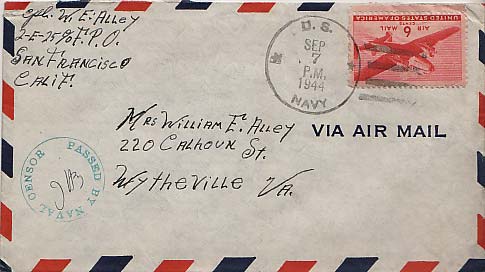 cpl. W. E. Alley
2-E-25 % F.P.O.
San Francisco
Calif.
U.S.
SEP
7
P.M.
1944
NAVY
UNITED STATES OF AMERICA
6 CENTS
AIR MAIL
Mrs William E. Alley
220 Calhoun St.
Wytheville Va.
VIA AIR MAIL
PASSED BY NAVAL CENSOR